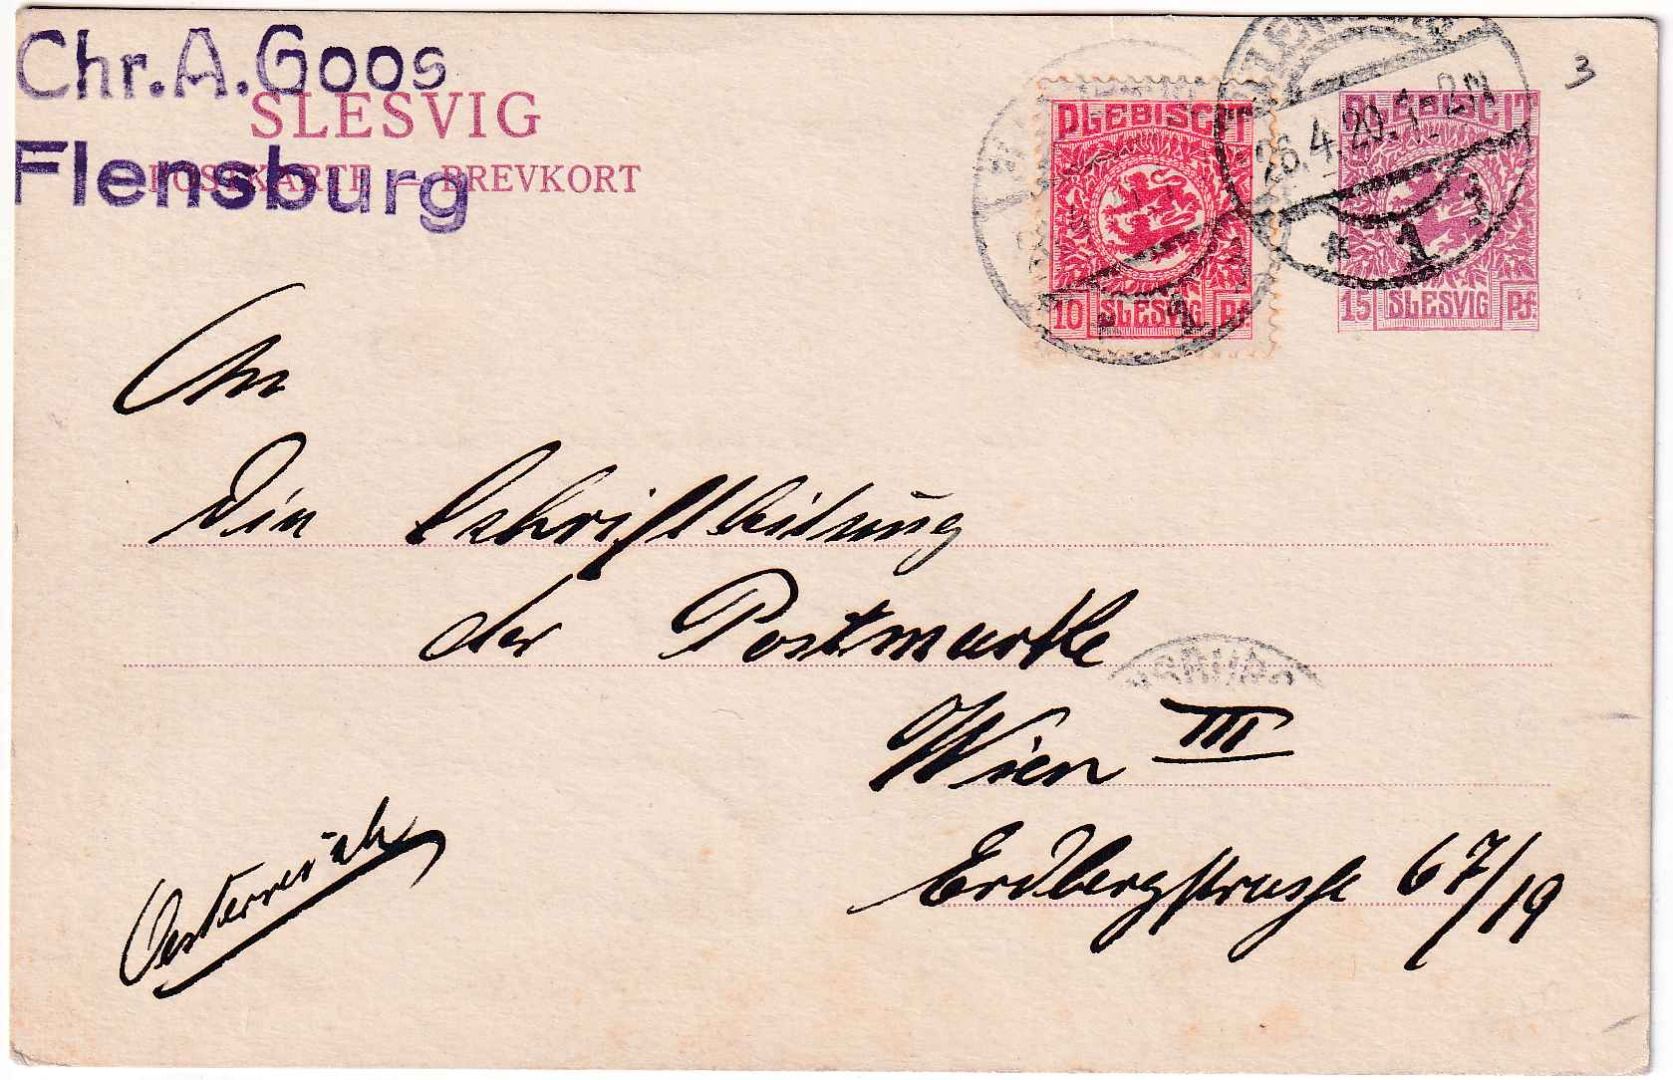 Chr. A. Goos
SLESVIG
Flensburg
POSTKARTE – BREVKORT
PLEBISCIT
10 SLESVIG Pf.
FLENSBURG
26.4.20.1-2N
* 1
PLEBISCIT
15 SLESVIG Pf.
3
An
Die Schriftleitung
der Postmarke
Wien III
Erdbergstrasse 67/19
Oesterreich